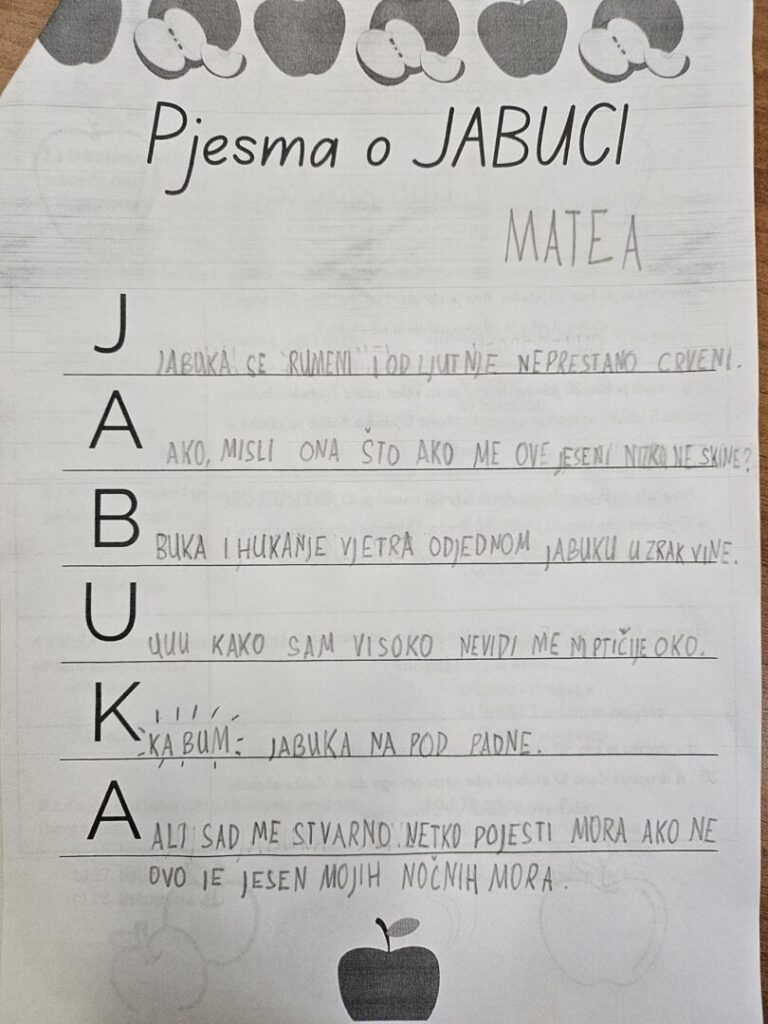 Pjesma o JABUCI
MATEA
J
JABUKA SE RUMENI I OD LJUTNJE NEPRESTANO CRVENI.
A
AKO, MISLI ONA ŠTO AKO ME OVE JESENI NITKO NE SKINE?
B
BUKA I HUKANJE VJETRA ODJEDNOM JABUKU U ZRAK VINE.
U
UUU KAKO SAM VISOKO NEVIDI ME NI PTIČIJE OKO.
K
KABUM JABUKA NA POD PADNE.
A
ALI SAD ME STVARNO NETKO POJESTI MORA AKO NE
OVO JE JESEN MOJIH NOĆNIH MORA.